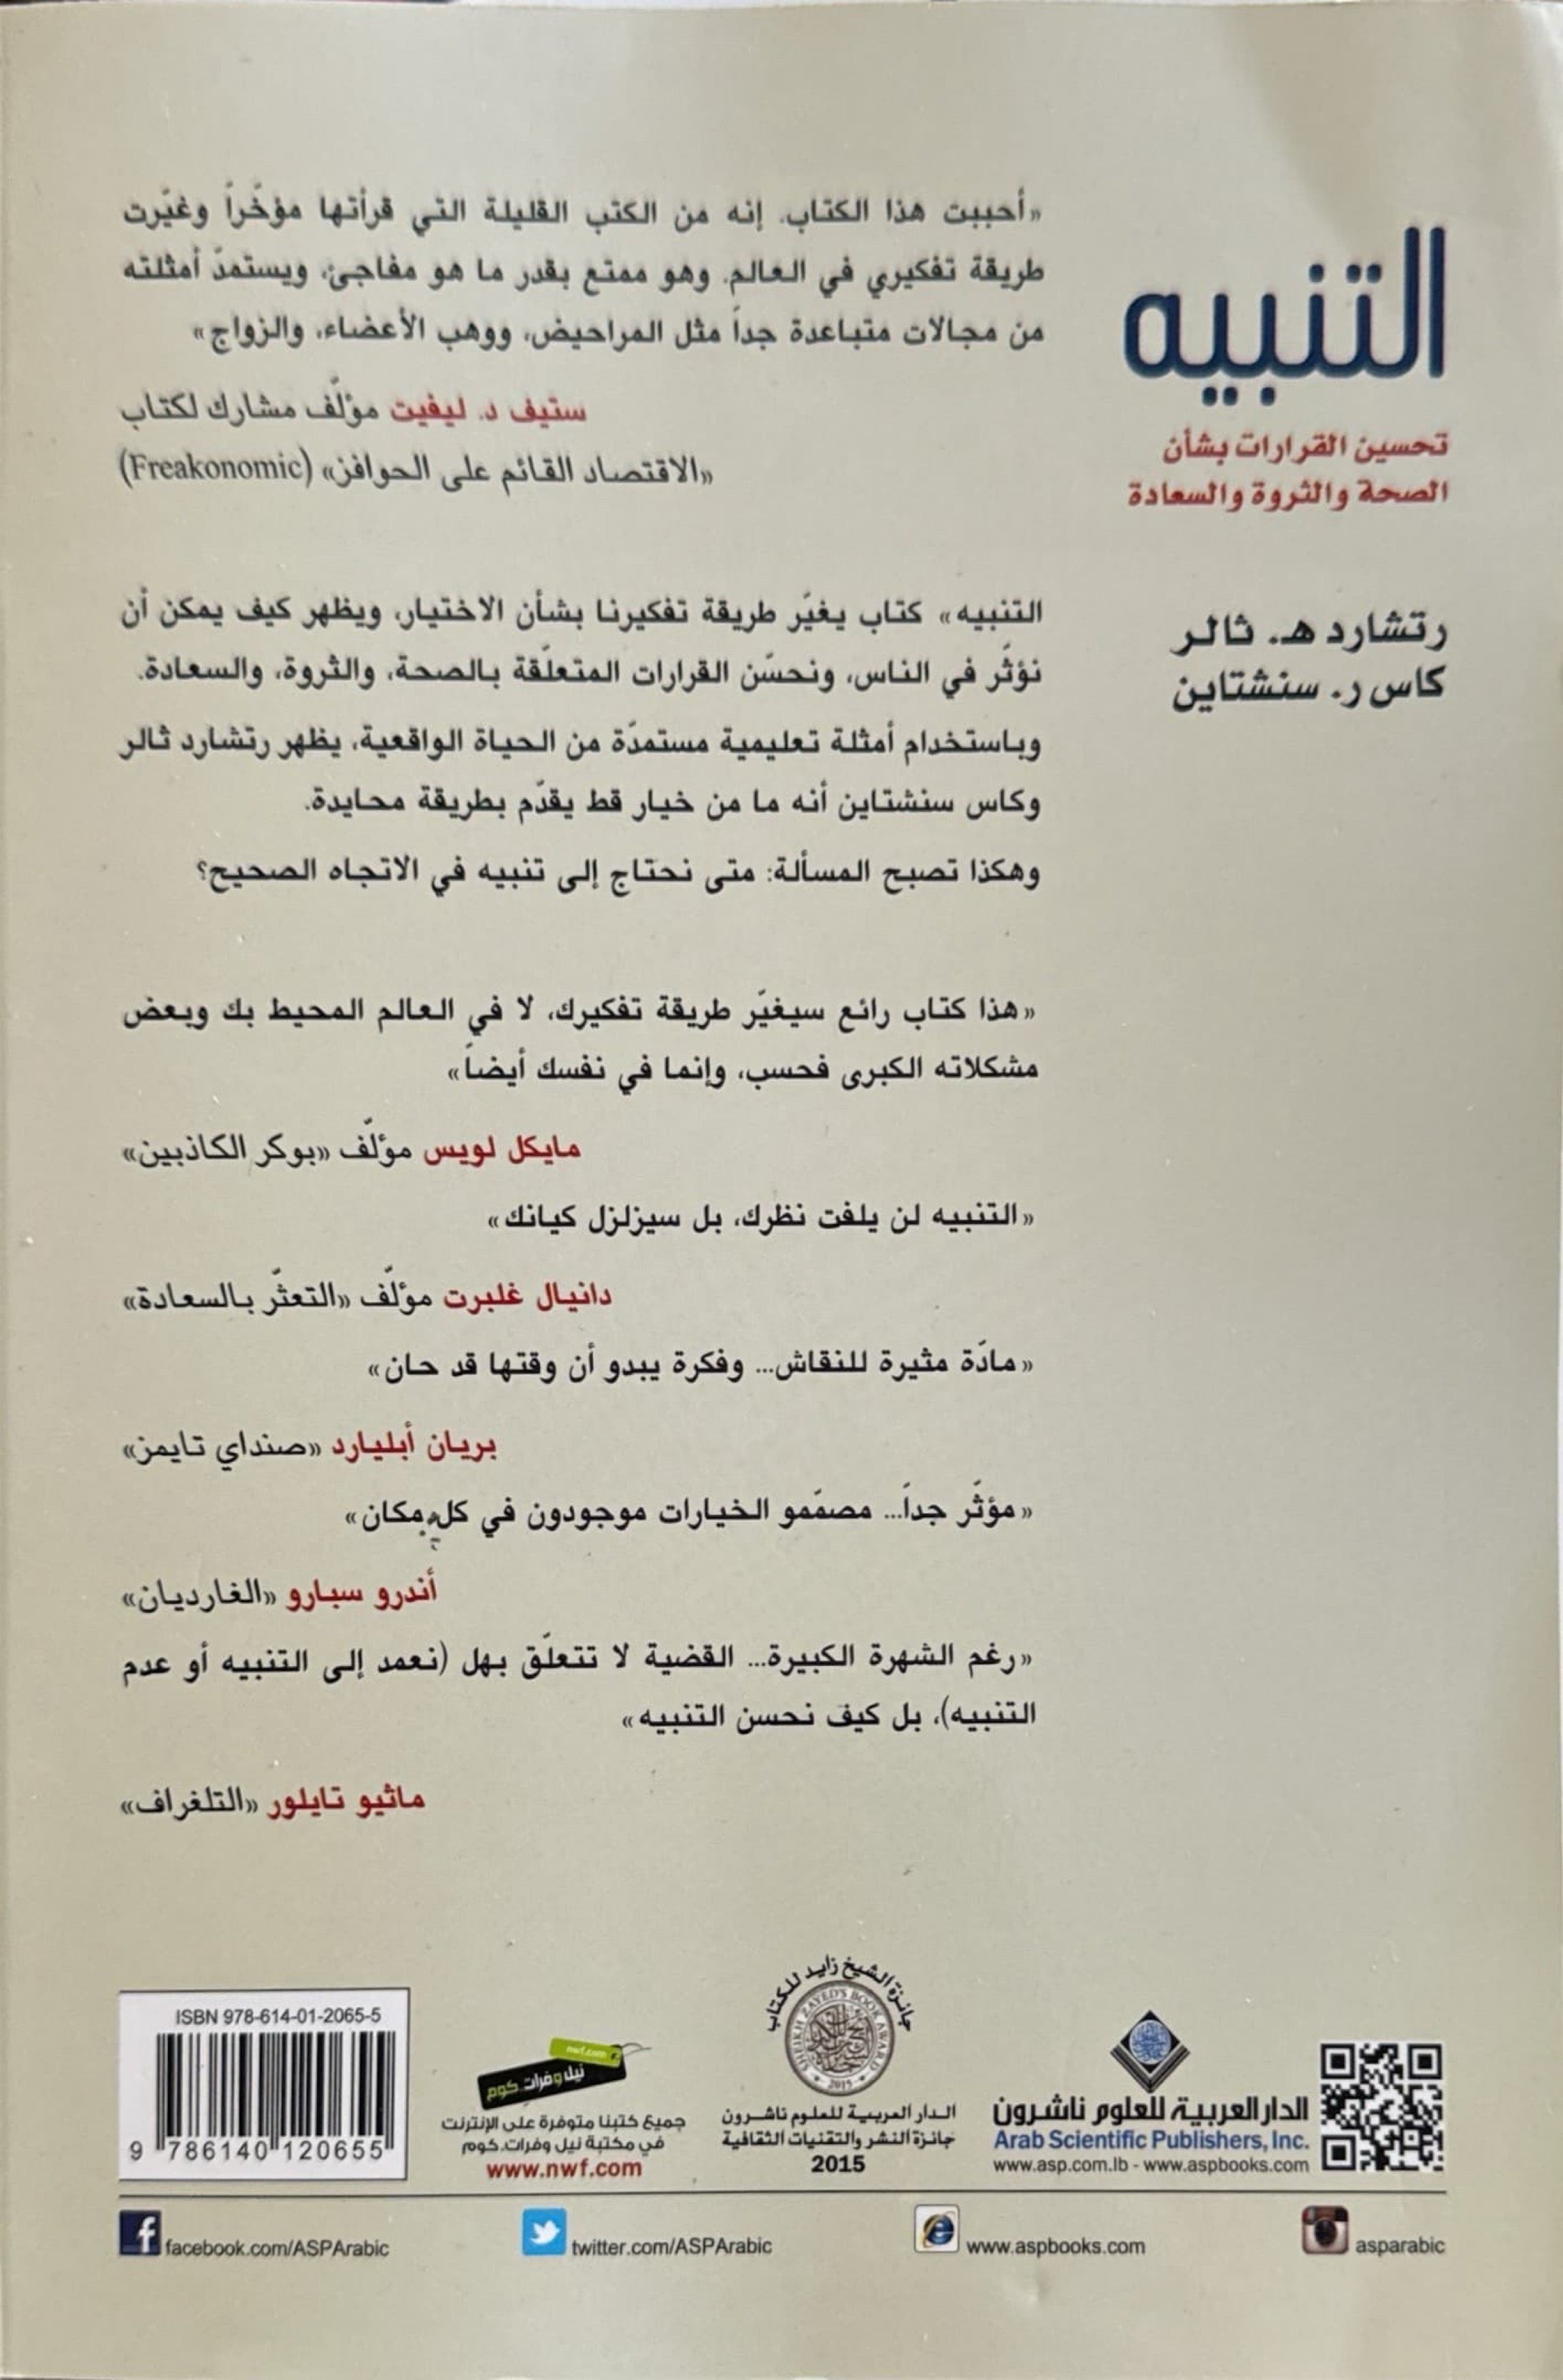 التنبيه
تحسين القرارات بشأن
الصحة والثروة والسعادة
رتشارد هـ. ثالر
كاس ر. سنشتاين
«أحببت هذا الكتاب. إنه من الكتب القليلة التي قرأتها مؤخّراً وغيّرت
طريقة تفكيري في العالم. وهو ممتع بقدر ما هو مفاجئ، ويستمدّ أمثلته
من مجالات متباعدة جداً مثل المراحيض، ووهب الأعضاء، والزواج»
ستيف د. ليفيت مؤلّف مشارك لكتاب
«الاقتصاد القائم على الحوافز» (Freakonomic)
التنبيه» كتاب يغيّر طريقة تفكيرنا بشأن الاختيار، ويظهر كيف يمكن أن
نؤثّر في الناس، ونحسّن القرارات المتعلّقة بالصحة، والثروة، والسعادة.
وباستخدام أمثلة تعليمية مستمدّة من الحياة الواقعية، يظهر رتشارد ثالر
وكاس سنشتاين أنه ما من خيار قط يقدّم بطريقة محايدة.
وهكذا تصبح المسألة: متى نحتاج إلى تنبيه في الاتجاه الصحيح؟
«هذا كتاب رائع سيغيّر طريقة تفكيرك، لا في العالم المحيط بك وبعض
مشكلاته الكبرى فحسب، وإنما في نفسك أيضاً»
مايكل لويس مؤلّف «بوكر الكاذبين»
«التنبيه لن يلفت نظرك، بل سيزلزل كيانك»
دانيال غلبرت مؤلّف «التعثّر بالسعادة»
«مادّة مثيرة للنقاش... وفكرة يبدو أن وقتها قد حان»
بريان أبليارد «صنداي تايمز»
«مؤثّر جداً... مصمّمو الخيارات موجودون في كل مكان»
أندرو سبارو «الغارديان»
«رغم الشهرة الكبيرة... القضية لا تتعلّق بهل (نعمد إلى التنبيه أو عدم
التنبيه)، بل كيف نحسن التنبيه»
ماثيو تايلور «التلغراف»
الدار العربية للعلوم ناشرون
Arab Scientific Publishers, Inc.
www.asp.com.lb - www.aspbooks.com
جائزة الشيخ زايد للكتاب
SHEIKH ZAYED'S BOOK AWARD
2015
الدار العربية للعلوم ناشرون
جائزة النشر والتقنيات الثقافية
2015
nwf.com
نيل وفرات.كوم
جميع كتبنا متوفرة على الإنترنت
في مكتبة نيل وفرات.كوم
www.nwf.com
ISBN 978-614-01-2065-5
9 786140 120655
facebook.com/ASPArabic
twitter.com/ASPArabic
www.aspbooks.com
asparabic